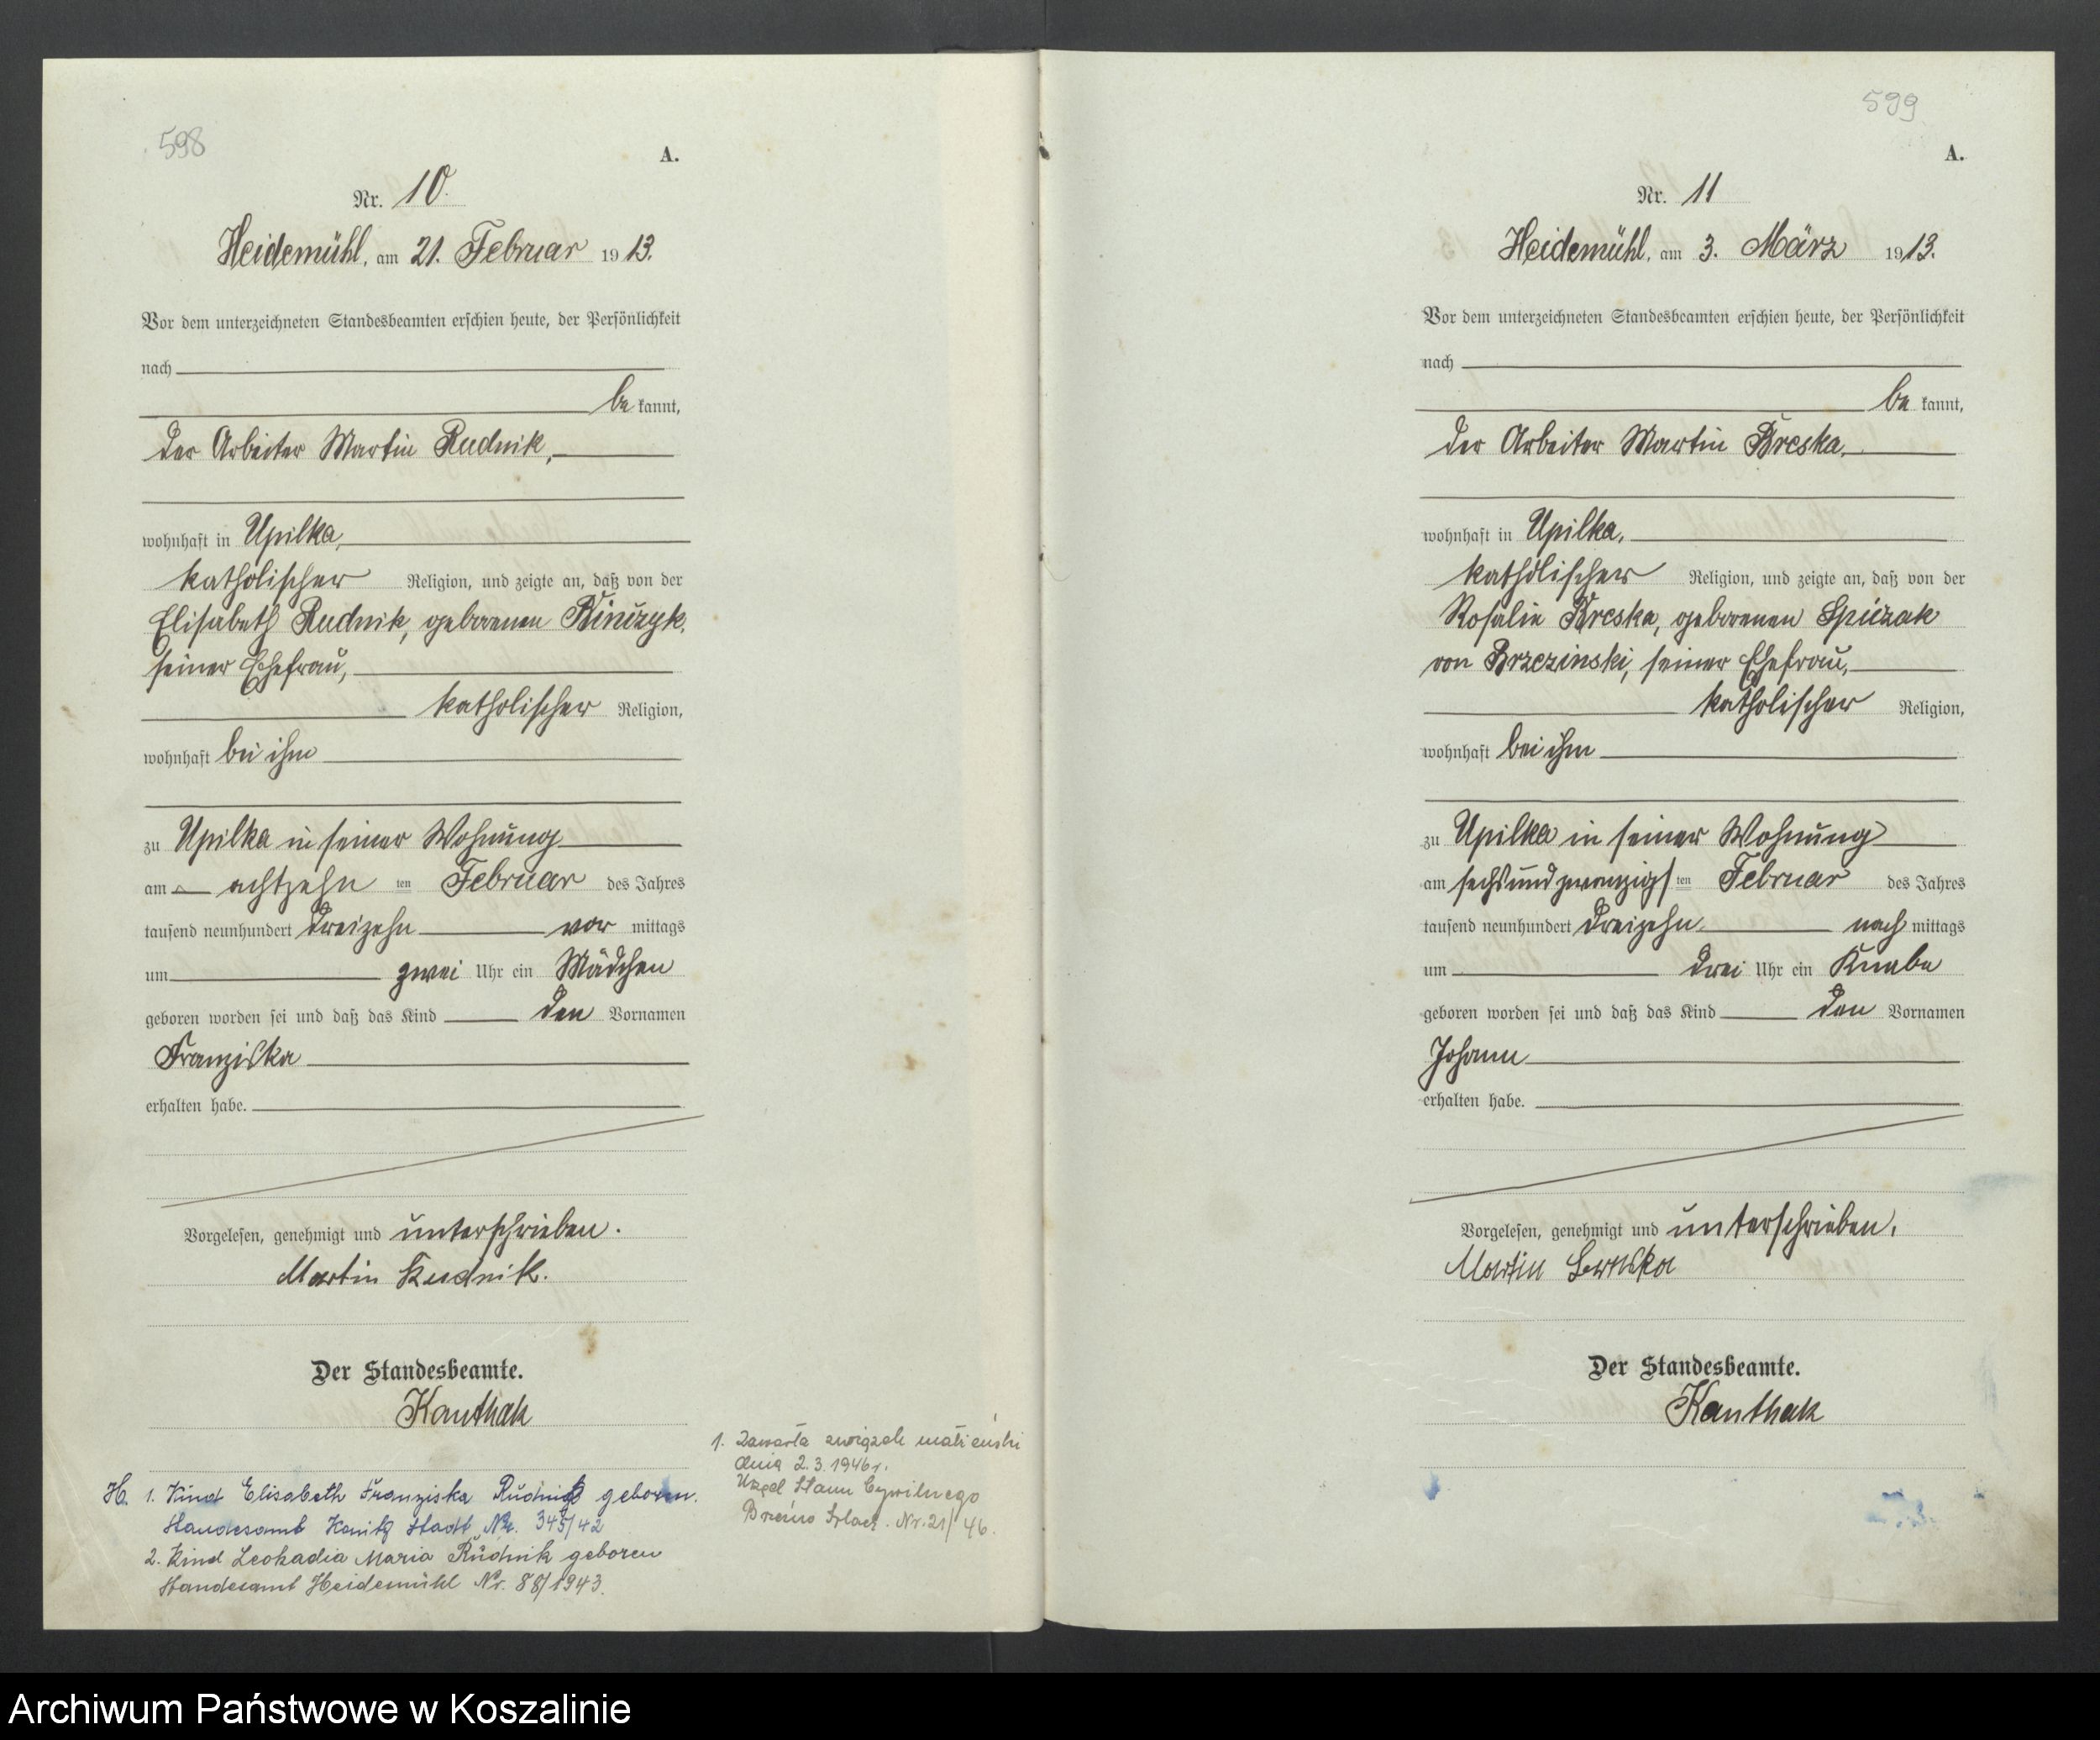 598
A.
Nr. 10.
Heidemühl, am 21. Februar 1913.
Vor dem unterzeichneten Standesbeamten erschien heute, der Persönlichkeit
nach
be kannt,
der Arbeiter Martin Rudnik,
wohnhaft in Upilka,
katholischer Religion, und zeigte an, daß von der
Elisabeth Rudnik, geborenen Binczyk,
seiner Ehefrau,
katholischer Religion,
wohnhaft bei ihm
zu Upilka in seiner Wohnung
am achtzehn ten Februar des Jahres
tausend neunhundert dreizehn vor mittags
um zwei Uhr ein Mädchen
geboren worden sei und daß das Kind den Vornamen
Franziska
erhalten habe.
Vorgelesen, genehmigt und unterschrieben.
Martin Rudnik.
Der Standesbeamte.
Kanthak
H. 1. Kind Elisabeth Franziska Rudnik geboren.
Standesamt Konitz Stadt Nr. 345/42
2. Kind Leokadia Maria Rudnik geboren
Standesamt Heidemühl Nr. 88/1943.
1. Zawarła związek małżeński
dnia 2.3.1946 r.
Urząd Stanu Cywilnego
Brzeźno Szlach. Nr. 21/46.
599
A.
Nr. 11
Heidemühl, am 3. März 1913.
Vor dem unterzeichneten Standesbeamten erschien heute, der Persönlichkeit
nach
be kannt,
der Arbeiter Martin Breska,
wohnhaft in Upilka,
katholischer Religion, und zeigte an, daß von der
Rosalie Breska, geborenen Spiczak
von Brzezinski, seiner Ehefrau,
katholischer Religion,
wohnhaft bei ihm
zu Upilka in seiner Wohnung
am sechsundzwanzigs ten Februar des Jahres
tausend neunhundert dreizehn nach mittags
um drei Uhr ein Knabe
geboren worden sei und daß das Kind den Vornamen
Johann
erhalten habe.
Vorgelesen, genehmigt und unterschrieben.
Martin
Der Standesbeamte.
Kanthak
Archiwum Państwowe w Koszalinie